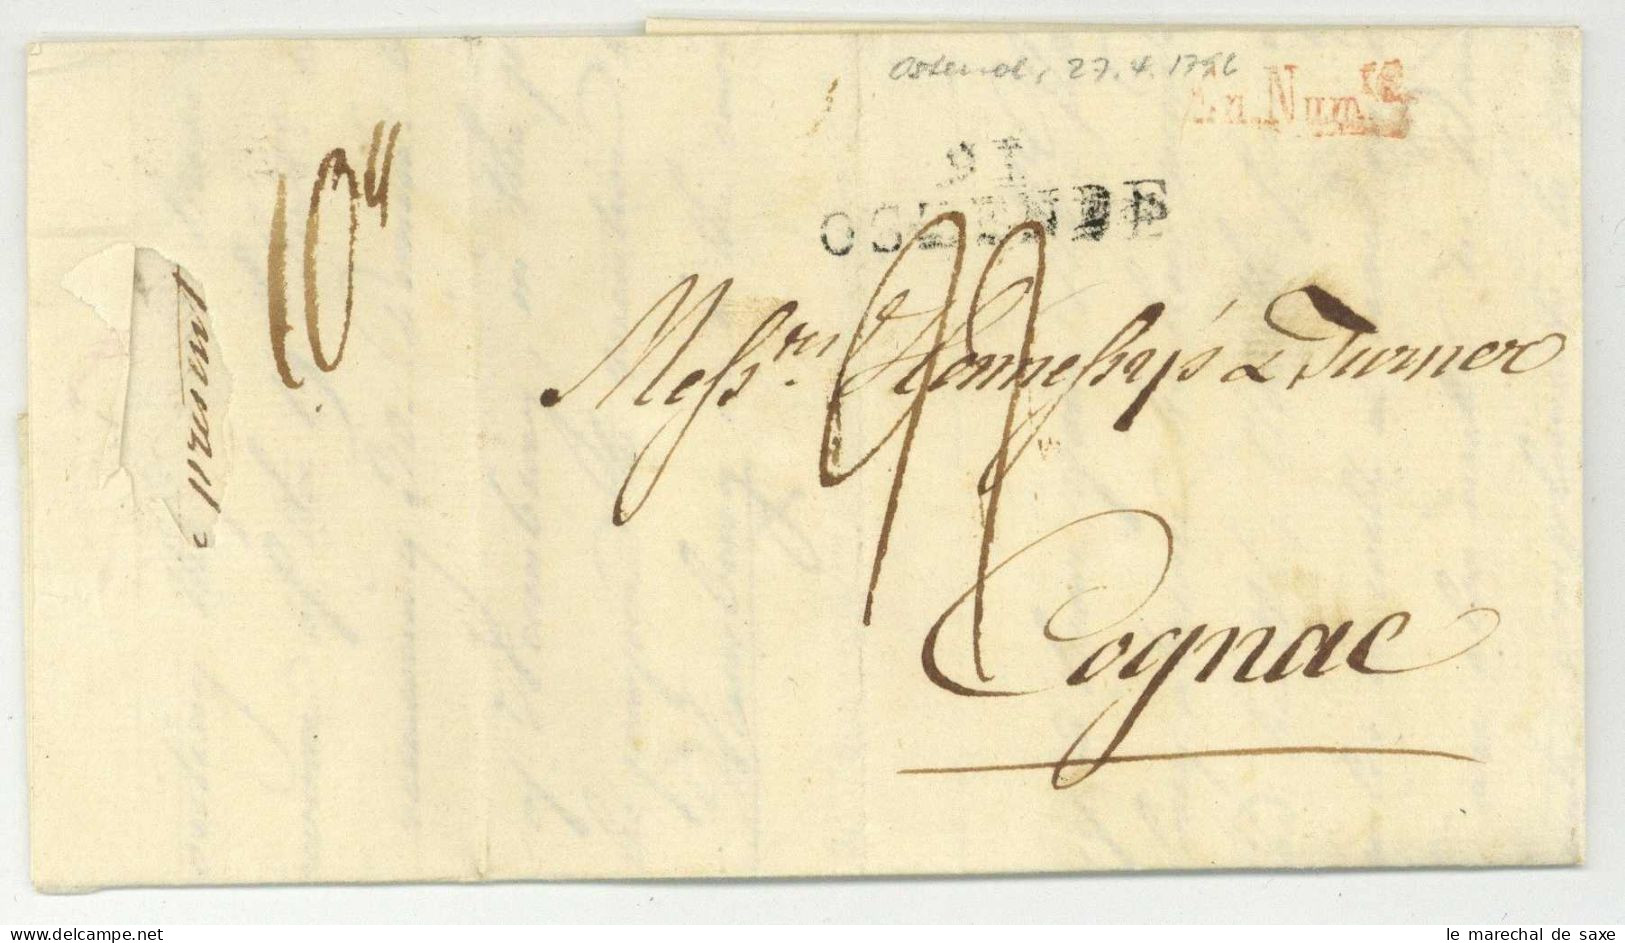 Ostend, 27.4.1796
En Num.re
91
OSTENDE
10
Messrs. Hennessy's & Turner
Cognac
present
www.delcampe.net
le marechal de saxe